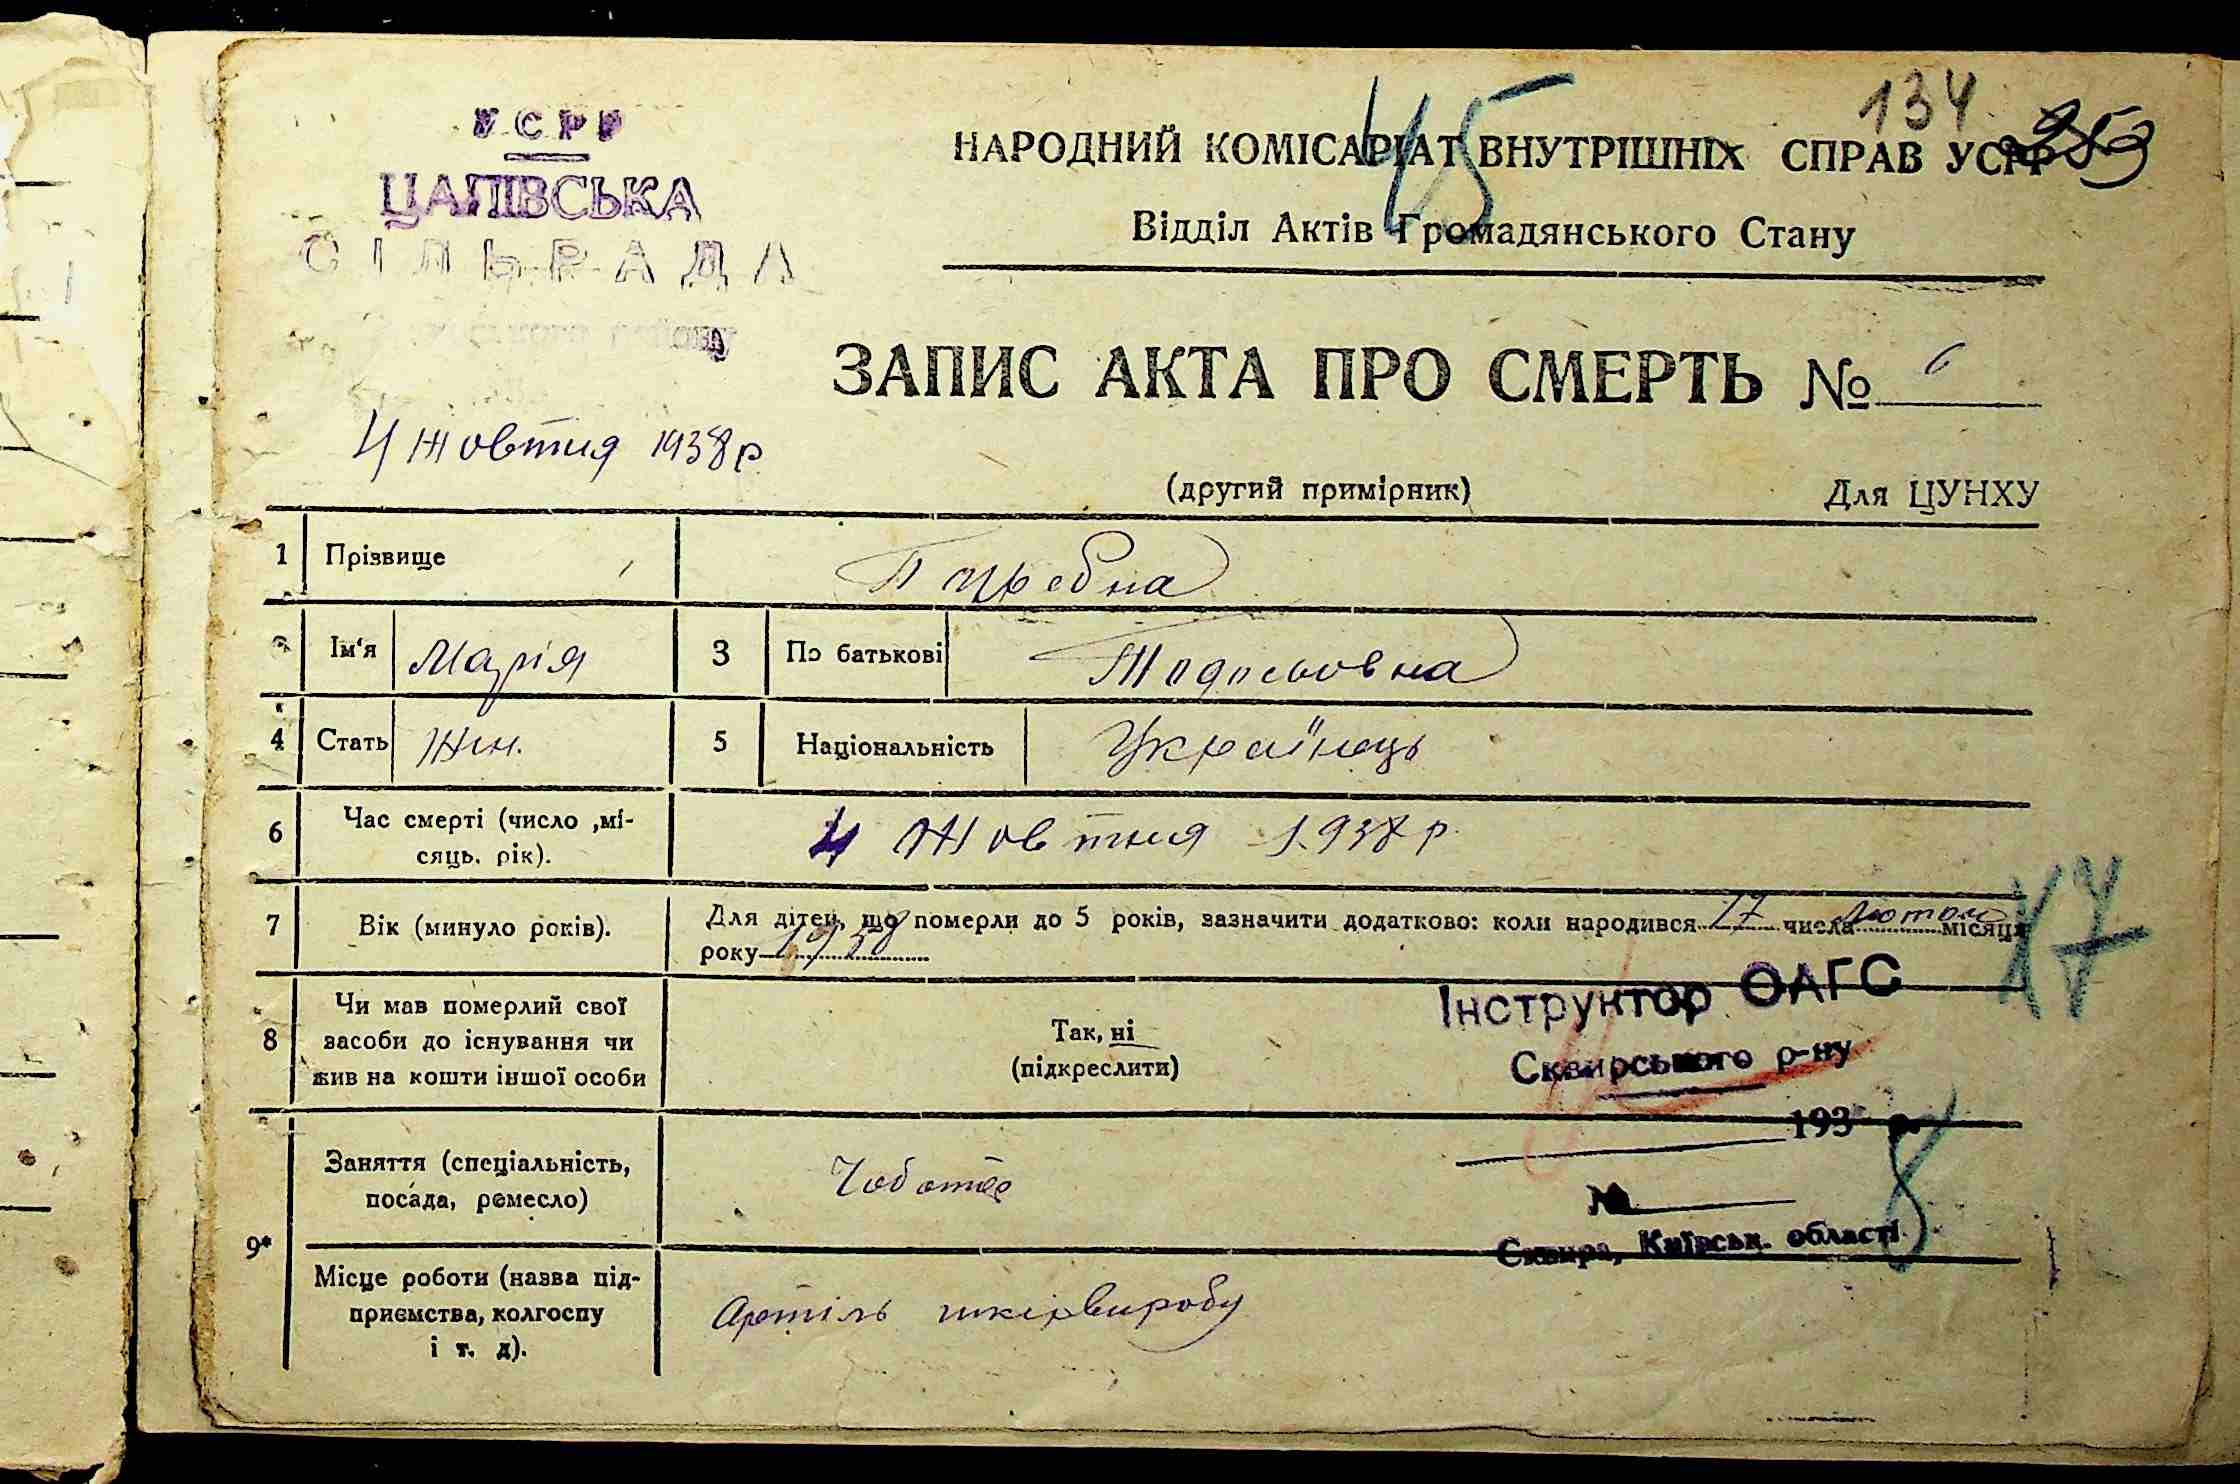 134
253
45
УСРР
ЦАПІВСЬКА
СІЛЬРАДА
району
НАРОДНИЙ КОМІСАРІАТ ВНУТРІШНІХ СПРАВ УСРР
Відділ Актів Громадянського Стану
ЗАПИС АКТА ПРО СМЕРТЬ № 6
4 Жовтня 1938 р
(другий примірник) Для ЦУНХУ
1 Прізвище
2 Ім'я Марія 3 По батькові Тодосьовна
4 Стать Жін. 5 Національність Українець
6 Час смерті (число ,мі-
сяць. рік).
4 Жовтня 1938 р.
7 Вік (минуло років).
Для дітей, що померли до 5 років, зазначити додатково: коли народився 17 числа лютого місяця
року 1938
17
8 Чи мав померлий свої
засоби до існування чи
жив на кошти іншої особи
Так, ні
(підкреслити)
Інструктор ОАГС
Сквирського р-ну
193 р.
8
№
Сквира, Київськ. області
9* Заняття (спеціальність,
посада, ремесло)
Чоботар
Місце роботи (назва під-
приємства, колгоспу
і т. д).
Артіль шкірвиробу